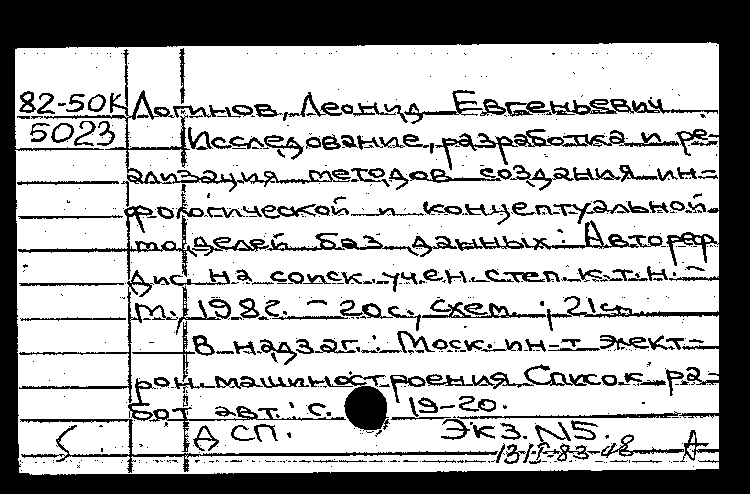 82-50К Логинов, Леонид Евгеньевич
5023 Исследование, разработка и ре-
ализация методов создания ин-
фологической и концептуальной
моделей баз данных: Автореф
дис. на соиск. учен. степ. к.т.н. -
М., 1982. - 20 с., схем. ; 21 см
В надзаг.: Моск. ин-т элект-
рон. машиностроения Список ра-
бот авт.: с. 19-20.
ДСП. Экз. N5.
А